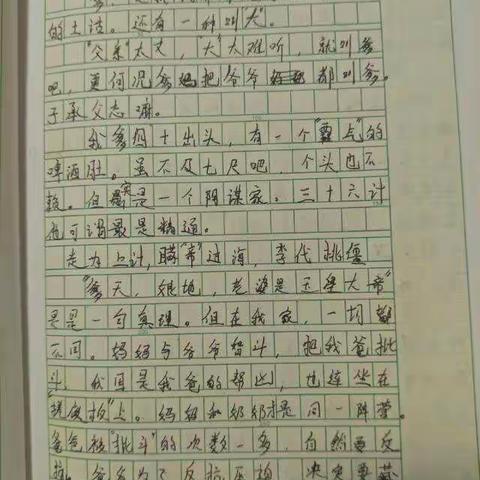 的土话。还有一种叫"大"。
"父亲"太文,"大"太难听,就叫爹
吧,更何况爹妈把爷爷都叫爹。
子承父志嘛。
我爹四十出头,有一个"霸气"的
啤酒肚。虽不及七尺吧,个头也不
矮。但其实是一个阴谋家。三十六计
他可谓最是精通。
走为上计,瞒"帝"过海,李代桃僵
"爹天,娘地,老婆是玉皇大帝"
是一句真理。但在我家,一切都
不同。妈妈与爷爷智斗,把我爸批
斗,我因是我爸的帮凶,也连坐在
"搓衣板"上。妈妈和奶奶是同一阵营。
爸爸被"批斗"的次数一多,自然要反
抗。爸爸为了反抗压迫,决定要藏